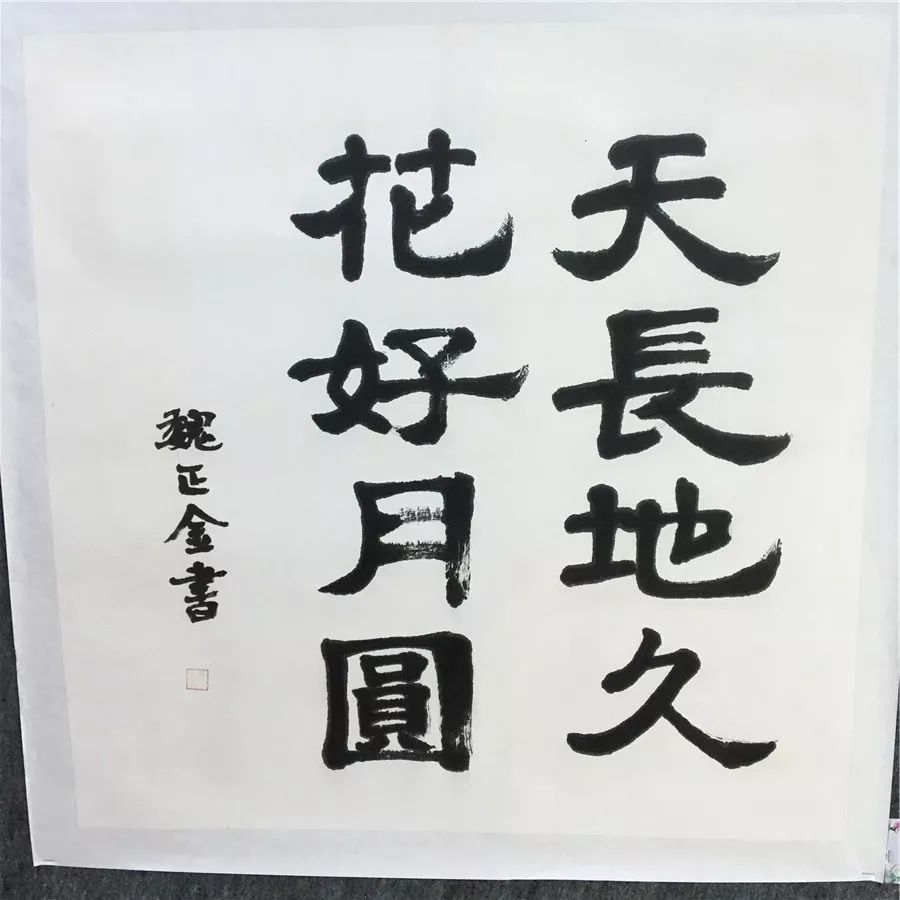 天長地久
花好月圓
魏正金書